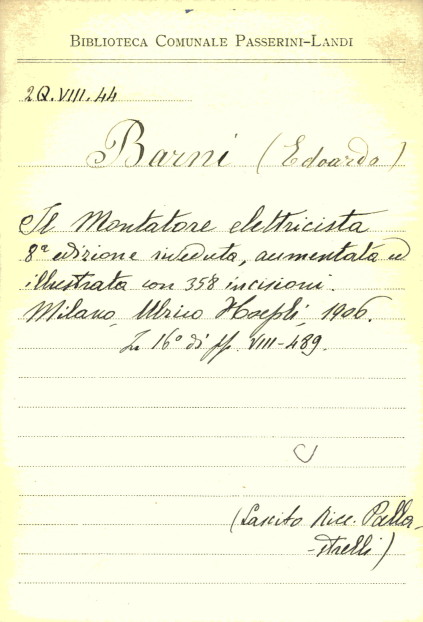 BIBLIOTECA COMUNALE PASSERINI-LANDI
2Q.VIII.44
Barni (Edoardo)
Il Montatore elettricista
8ª edizione riveduta, aumentata ed
illustrata con 358 incisioni.
Milano, Ulrico Hoepli, 1906.
In 16° di pp. VIII-489.
(Lascito Ricc. Palla-
-strelli)